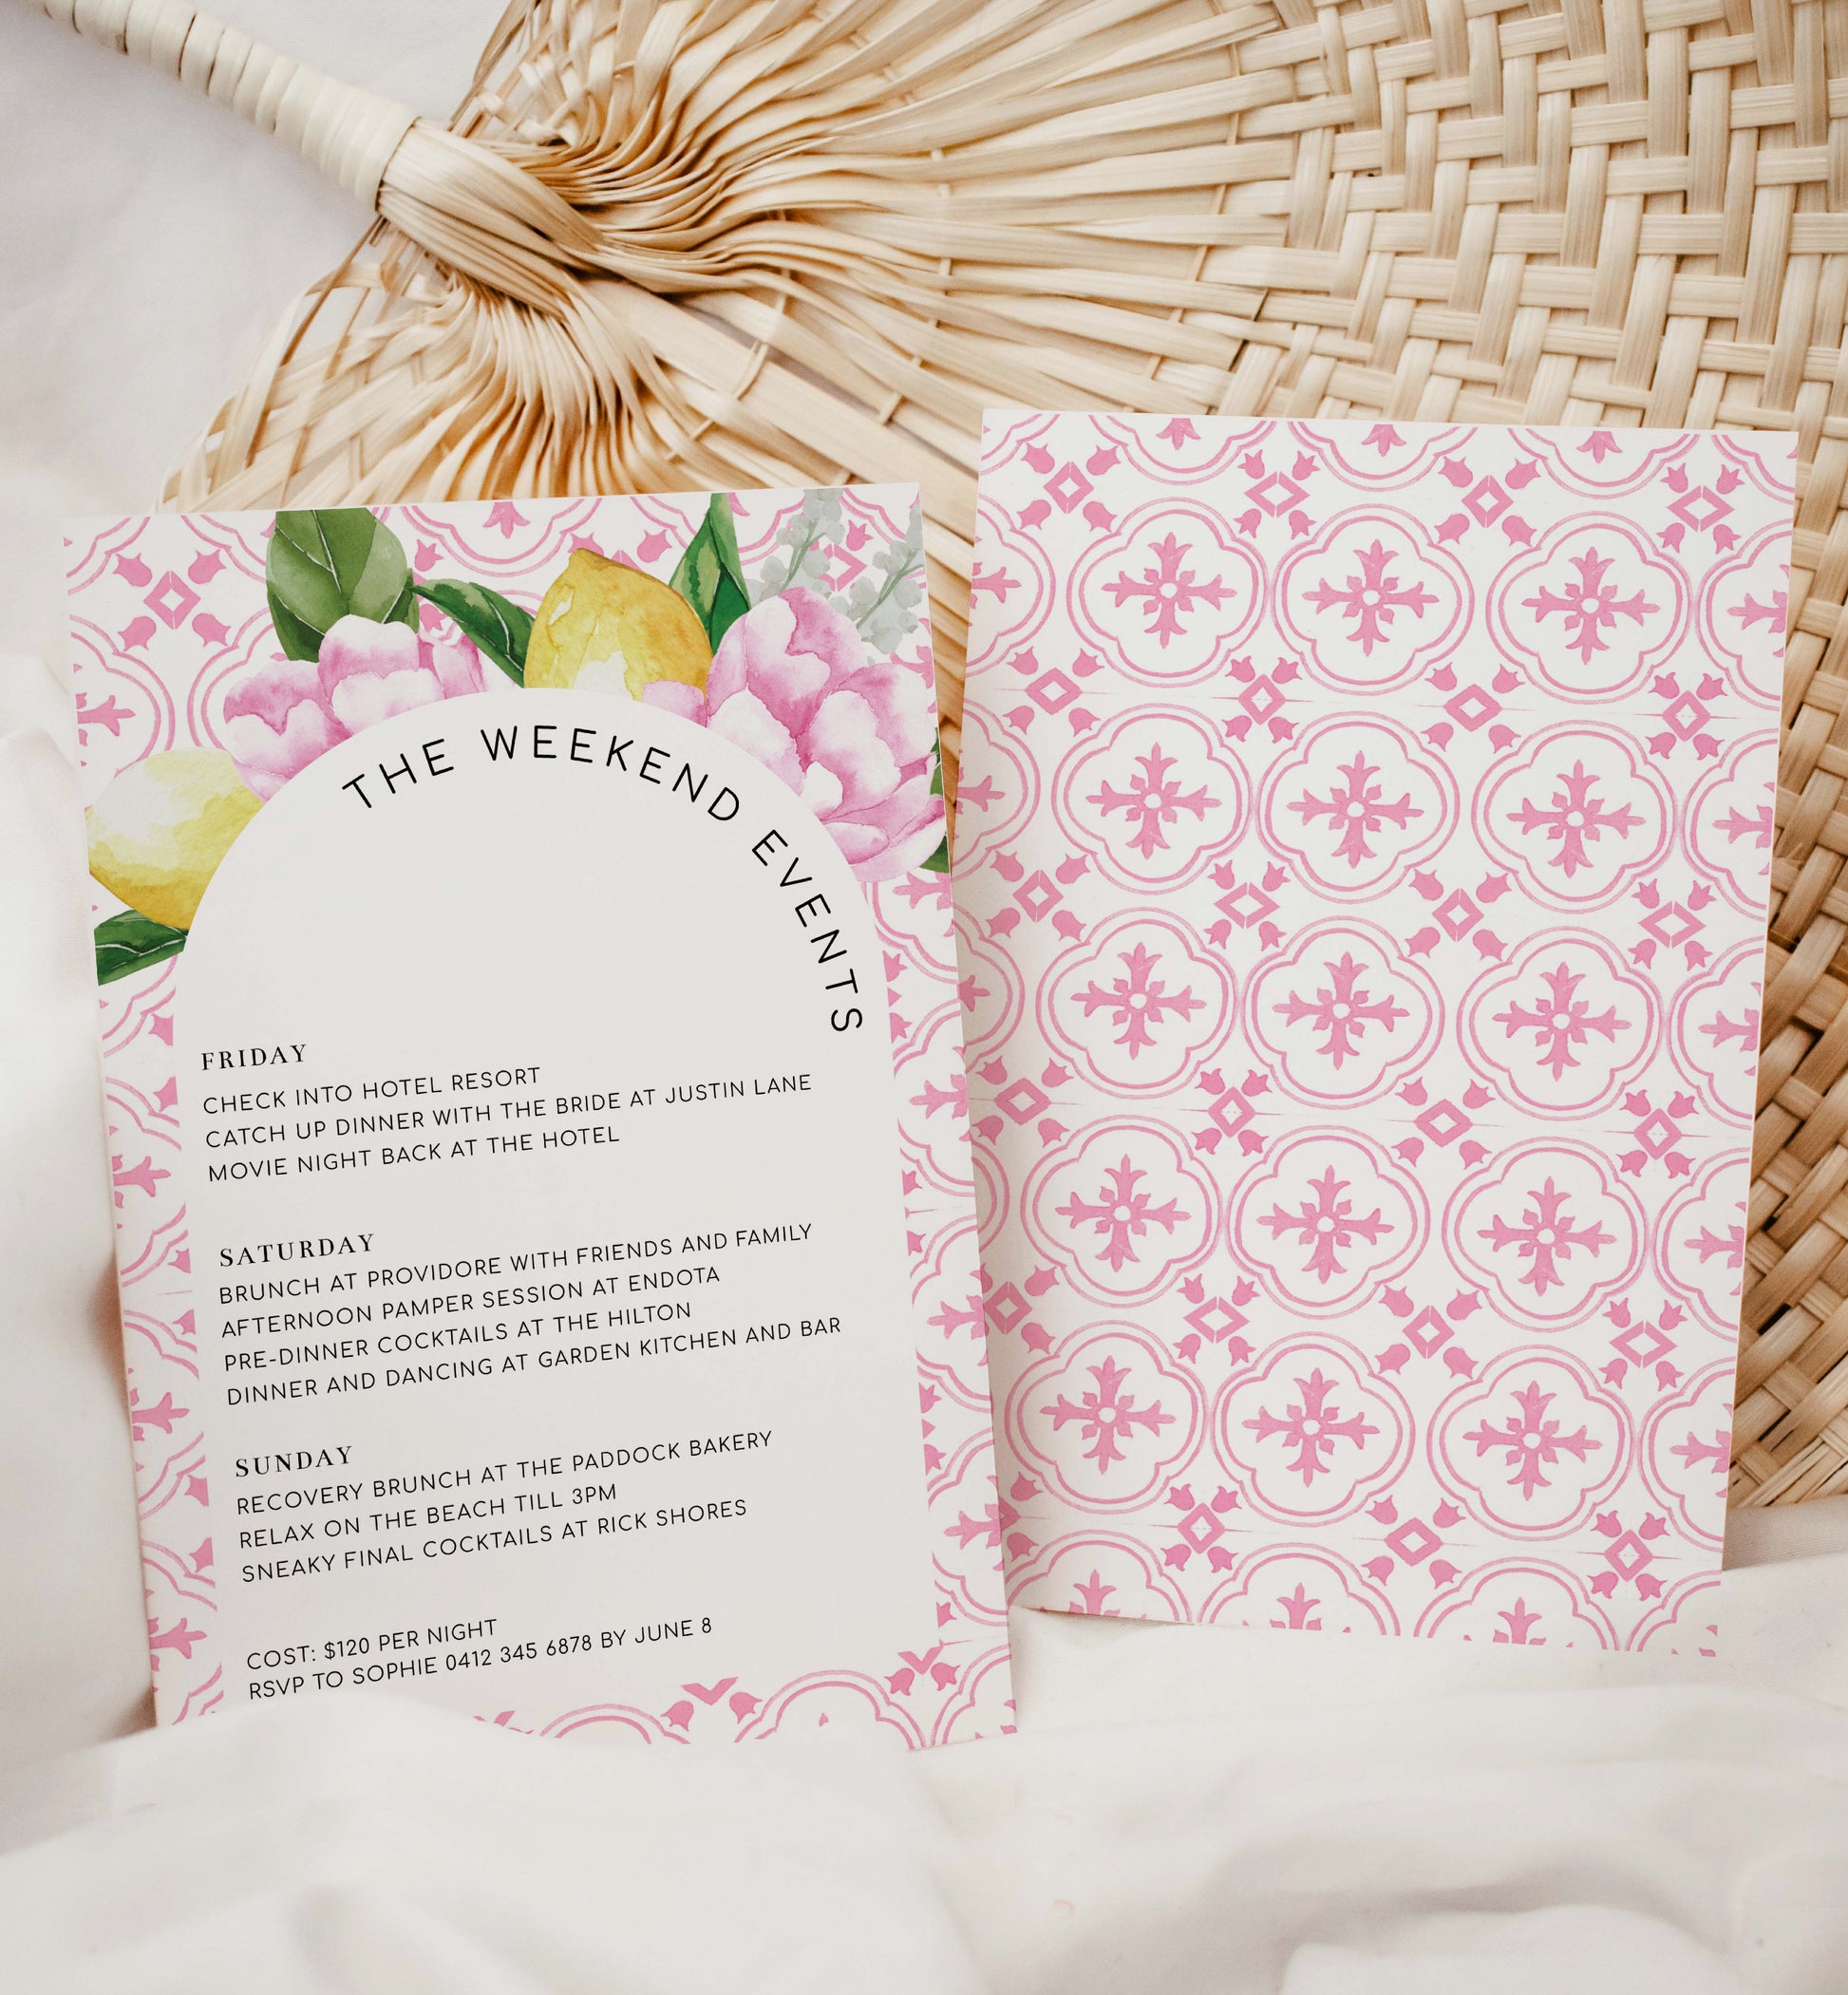 THE WEEKEND EVENTS
FRIDAY
CHECK INTO HOTEL RESORT
CATCH UP DINNER WITH THE BRIDE AT JUSTIN LANE
MOVIE NIGHT BACK AT THE HOTEL
SATURDAY
BRUNCH AT PROVIDORE WITH FRIENDS AND FAMILY
AFTERNOON PAMPER SESSION AT ENDOTA
PRE-DINNER COCKTAILS AT THE HILTON
DINNER AND DANCING AT GARDEN KITCHEN AND BAR
SUNDAY
RECOVERY BRUNCH AT THE PADDOCK BAKERY
RELAX ON THE BEACH TILL 3PM
SNEAKY FINAL COCKTAILS AT RICK SHORES
COST: $120 PER NIGHT
RSVP TO SOPHIE 0412 345 6878 BY JUNE 8